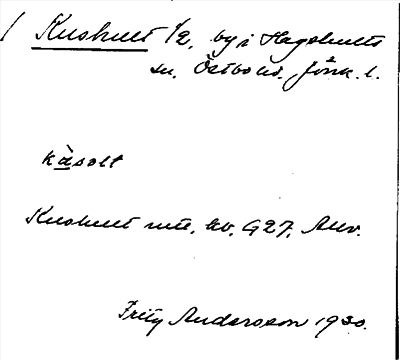 / Kushult 1/2, by i Hagshults
sn. Östbo hd. Jönk. l.
kåsolt
Kushult mtl. kv. G27. Allv.
Fritz Andersson 1930.